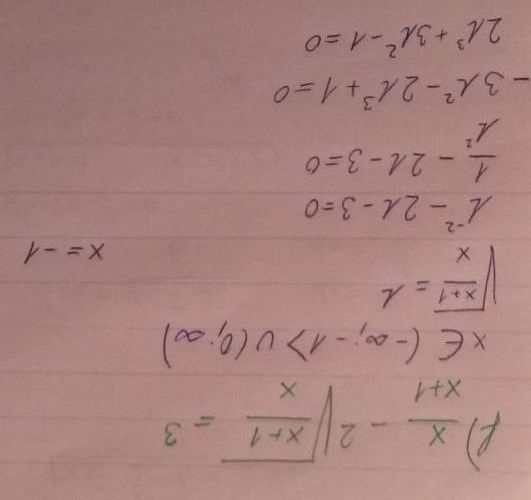 f) x/(x+1) - 2√((x+1)/x) = 3
x ∈ (-∞; -1> ∪ (0; ∞)
√((x+1)/x) = λ
x = -1
λ⁻² - 2λ - 3 = 0
1/λ² - 2λ - 3 = 0
- 3λ² - 2λ³ + 1 = 0
2λ³ + 3λ² - 1 = 0